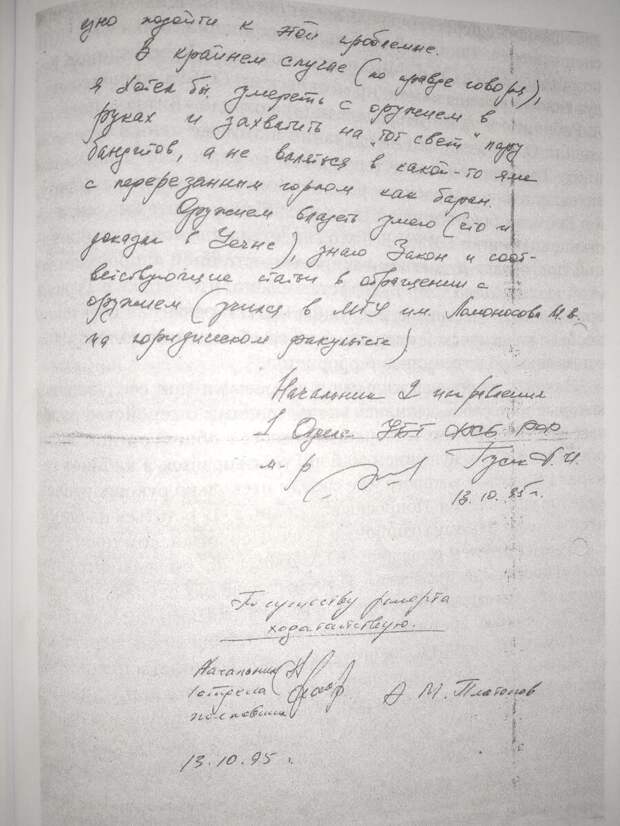 зно подойти к этой проблеме.
В крайнем случае (по правде говоря),
я хотел бы умереть с оружием в
руках и захватить на "тот свет" пару
бандитов, а не валяться в какой-то яме
с перерезанным горлом как баран.
Оружием владеть умею (это и
доказал в Чечне), знаю Закон и соот-
ветствующие статьи в обращении с
оружием (учился в МГУ им. Ломоносова М.В.
на юридическом факультете)
Начальник 2 направления
1 Отдела УБТ ФСБ РФ
м-р Гусак А.И.
13.10.95г.
По существу рапорта
ходатайствую.
Начальник
1 отдела
полковник А.М. Платонов
13.10.95г.